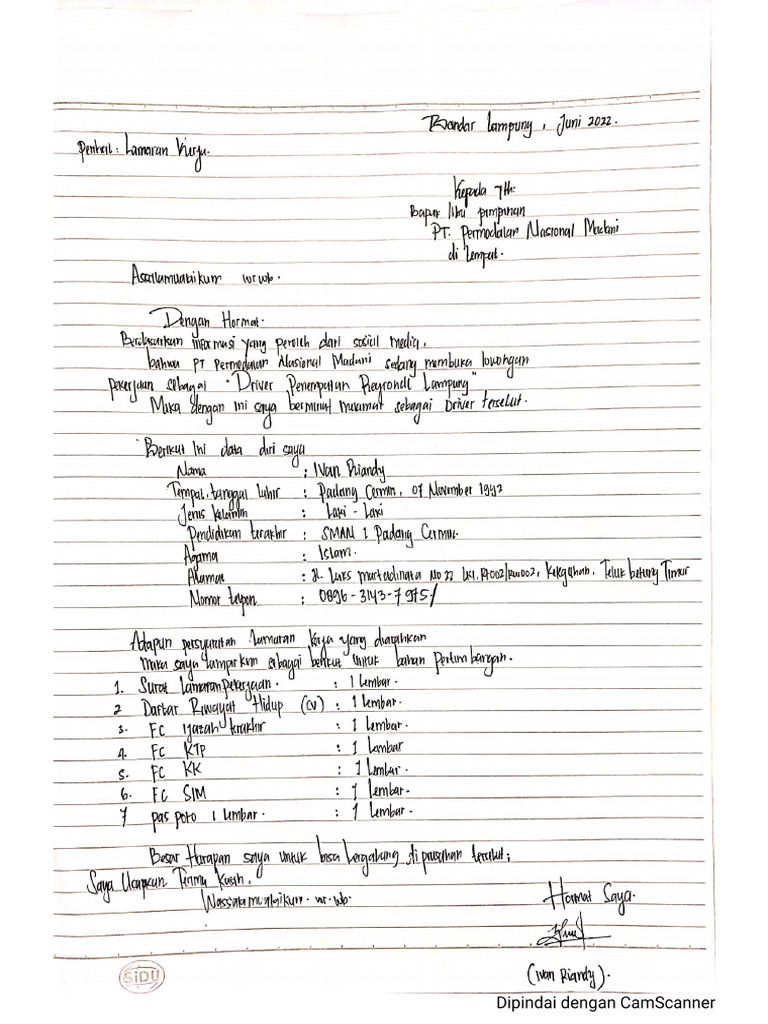 Bandar Lampung, Juni 2022.
Perihal : Lamaran Kerja.
Kepada Yth:
Bapak / ibu pimpinan
PT. Permodalan Nasional Madani
di tempat.
Assalamualaikum wr wb.
Dengan Hormat.
Berdasarkan informasi yang peroleh dari sosial media,
bahwa PT Permodalan Nasional Madani sedang membuka lowongan
pekerjaan sebagai "Driver Penempatan Regional Lampung"
Maka dengan ini saya berminat melamat sebagai Driver tersebut.
Berikut ini data diri saya
Nama : Ivan Riandy
Tempat, tanggal lahir : Padang Cermin, 07 November 1992
Jenis Kelamin : Laki - Laki
Pendidikan terakhir : SMAN 1 Padang Cermin.
Agama : Islam.
Alamat : Jl. Laks martadinata No 22 LK1. RT002/RW002, Keteguhan, Teluk betung Timur
Nomor telpon : 0896-3143-7975/
Adapun persyaratan lamaran kerja yang
maka saya lampirkan sebagai berikut untuk bahan pertimbangan.
1. Surat lamaran pekerjaan. : 1 lembar.
2 Daftar Riwayat Hidup (CV) : 1 lembar.
3. FC ijazah terakhir : 1 lembar.
4. FC KTP : 1 lembar
5. FC KK : 1 lembar.
6. FC SIM : 1 lembar.
7 pas poto 1 lembar. : 1 lembar.
Besar Harapan saya untuk bisa bergabung di perusahan tersebut;
Saya Ucapkan Terima Kasih.
Wassalamualaikum. wr. wb.
Hormat Saya
(Ivan Riandy).
SiDU
Dipindai dengan CamScanner